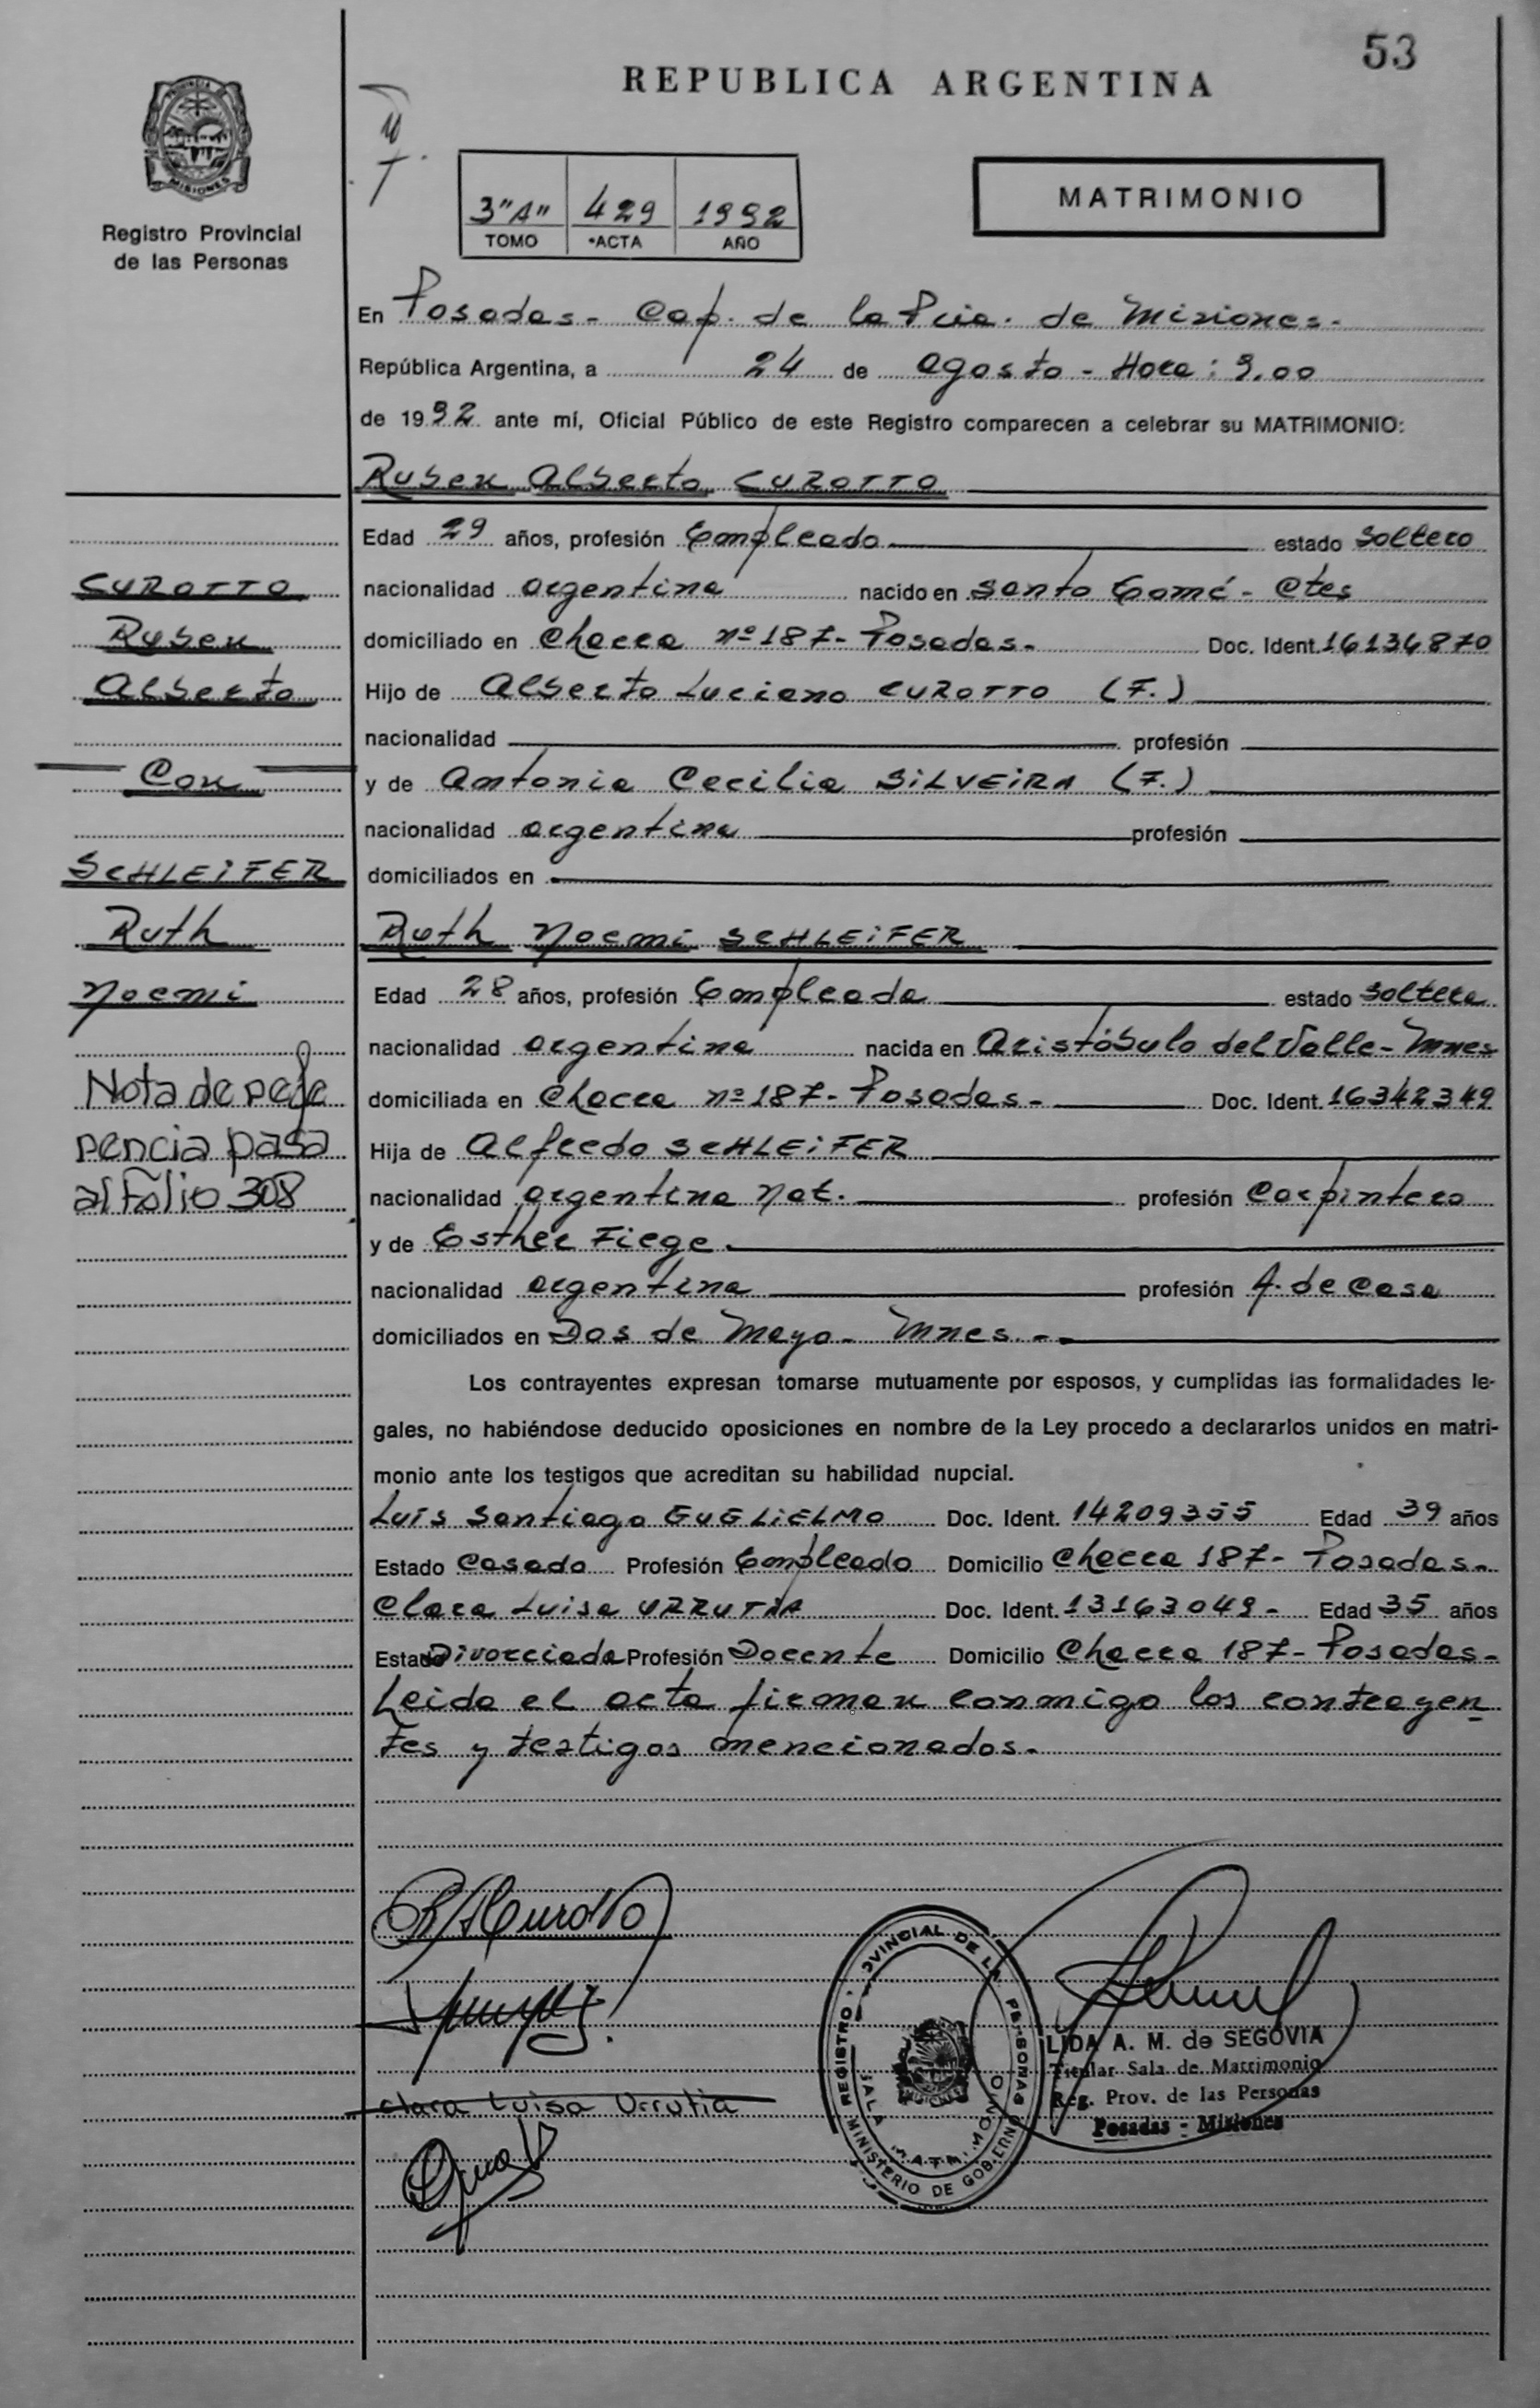 53
REPUBLICA ARGENTINA
MATRIMONIO
3"A" 429 1992
TOMO ACTA AÑO
PROVINCIA DE
MISIONES
Registro Provincial
de las Personas
En Posadas- Cap. de la Pcia. de Misiones.
República Argentina, a 24 de agosto - Hora: 9.00
de 1992 ante mí, Oficial Público de este Registro comparecen a celebrar su MATRIMONIO:
Ruben Alberto CUROTTO
Edad 29 años, profesión Empleado estado Soltero
nacionalidad argentina nacido en Santo Tomé - Ctes
domiciliado en Checca nº 187- Posadas. Doc. Ident. 16134870
Hijo de Alberto Luciano CUROTTO (F.)
nacionalidad profesión
y de Antonia Cecilia SILVEIRA (F.)
nacionalidad argentina profesión
domiciliados en
Ruth Noemi SCHLEIFER
Edad 28 años, profesión Empleada estado Soltera
nacionalidad argentina nacida en Aristóbulo del Valle- Mnes
domiciliada en Checca nº 187- Posadas- Doc. Ident. 16342349
Hija de Alfredo SCHLEIFER
nacionalidad argentina Nat. profesión Carpintero
y de Esther Fiege
nacionalidad argentina profesión A. de Casa
domiciliados en Dos de Mayo- Mnes.-
Los contrayentes expresan tomarse mutuamente por esposos, y cumplidas las formalidades le-
gales, no habiéndose deducido oposiciones en nombre de la Ley procedo a declararlos unidos en matri-
monio ante los testigos que acreditan su habilidad nupcial.
Luís Santiago GUGLIELMO Doc. Ident. 14209355 Edad 39 años
Estado Casado Profesión Empleado Domicilio Checca 187- Posadas-
Clara Luisa URRUTIA Doc. Ident. 13163049- Edad 35 años
Estado Divorciada Profesión Docente Domicilio Checca 187- Posadas-
Leida el acta firman conmigo los contrayen
tes y testigos mencionados.
CUROTTO
Ruben
Alberto
Con
SCHLEIFER
Ruth
Noemi
Nota de refe
rencia pasa
al Folio 308
RACurotto
Clara Luisa Urrutia
REGISTRO PROVINCIAL DE LAS PERSONAS
MINISTERIO DE GOBIERNO
SALA MATRIMONIO
MISIONES
LIDA A. M. de SEGOVIA
Titular Sala de Matrimonio
Reg. Prov. de las Personas
Posadas - Misiones